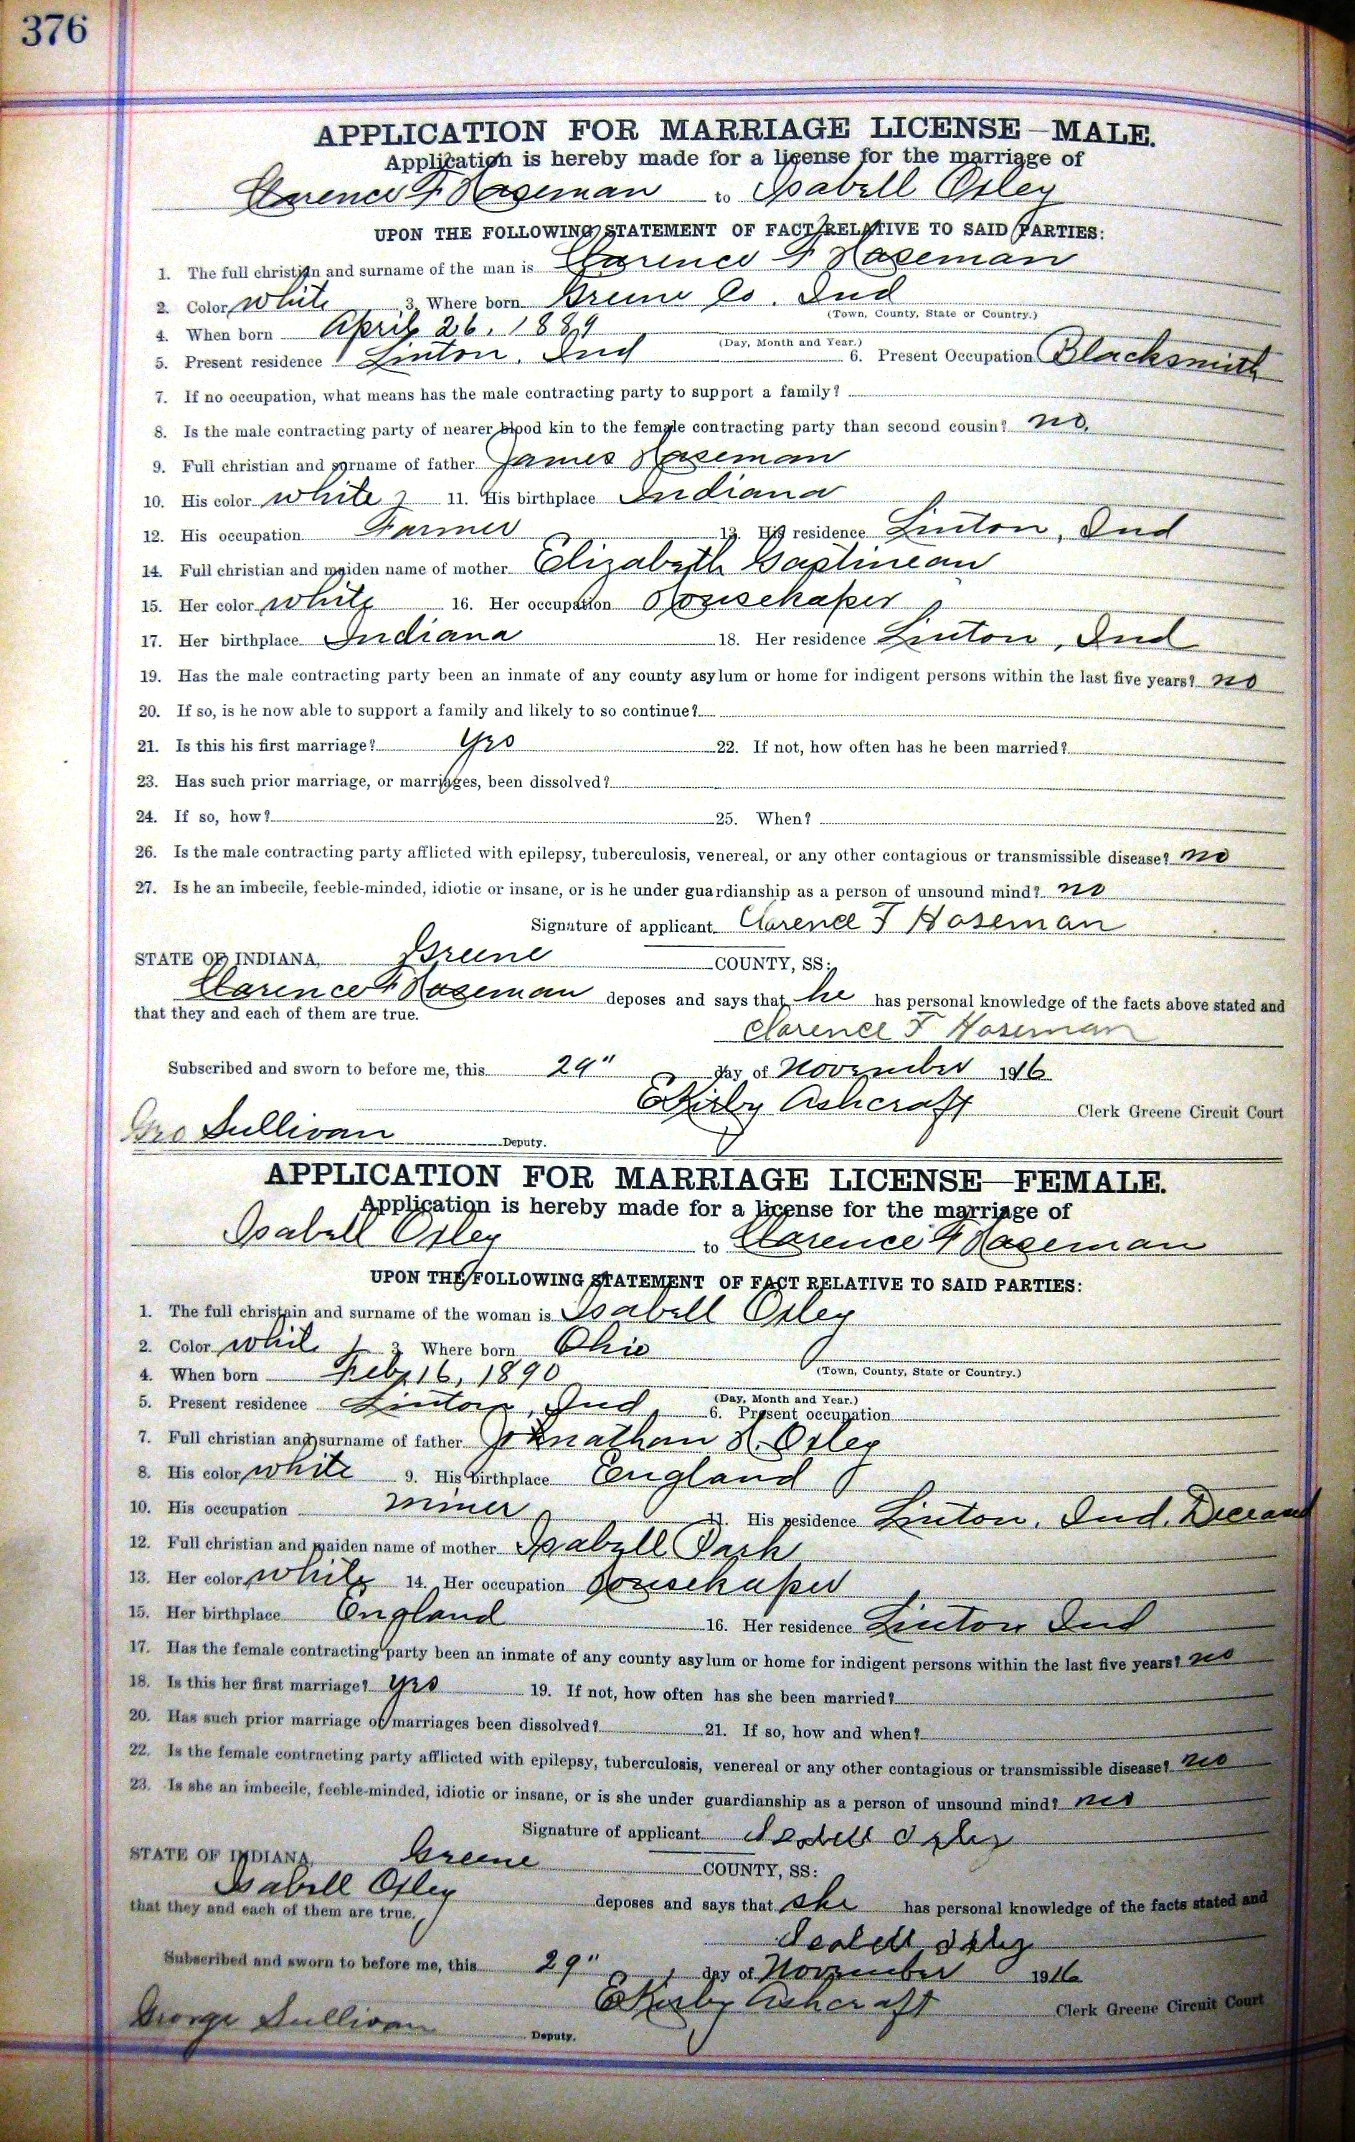 376
APPLICATION FOR MARRIAGE LICENSE—MALE.
Application is hereby made for a license for the marriage of
Clarence F Hoseman to Isabell Oxley
UPON THE FOLLOWING STATEMENT OF FACT RELATIVE TO SAID PARTIES:
1. The full christian and surname of the man is Clarence F Hoseman
2. Color white 3. Where born Greene Co. Ind
(Town, County, State or Country.)
4. When born April 26, 1889
(Day, Month and Year.)
5. Present residence Linton, Ind 6. Present Occupation Blacksmith
7. If no occupation, what means has the male contracting party to support a family?
8. Is the male contracting party of nearer blood kin to the female contracting party than second cousin? no.
9. Full christian and surname of father James Hoseman
10. His color white 11. His birthplace Indiana
12. His occupation Farmer 13. His residence Linton, Ind
14. Full christian and maiden name of mother Elizabeth Gastineau
15. Her color white 16. Her occupation Housekeeper
17. Her birthplace Indiana 18. Her residence Linton, Ind
19. Has the male contracting party been an inmate of any county asylum or home for indigent persons within the last five years? no
20. If so, is he now able to support a family and likely to so continue?
21. Is this his first marriage? yes 22. If not, how often has he been married?
23. Has such prior marriage, or marriages, been dissolved?
24. If so, how? 25. When?
26. Is the male contracting party afflicted with epilepsy, tuberculosis, venereal, or any other contagious or transmissible disease? no
27. Is he an imbecile, feeble-minded, idiotic or insane, or is he under guardianship as a person of unsound mind? no
Signature of applicant Clarence F Hoseman
STATE OF INDIANA, Greene COUNTY, SS:
Clarence F Hoseman deposes and says that he has personal knowledge of the facts above stated and
that they and each of them are true.
Clarence F Hoseman
Subscribed and sworn to before me, this 29" day of November 1916
E Kirby Ashcraft Clerk Greene Circuit Court
Geo Sullivan Deputy.
APPLICATION FOR MARRIAGE LICENSE—FEMALE.
Application is hereby made for a license for the marriage of
Isabell Oxley to Clarence F Hoseman
UPON THE FOLLOWING STATEMENT OF FACT RELATIVE TO SAID PARTIES:
1. The full christain and surname of the woman is Isabell Oxley
2. Color whit 3. Where born Ohio
(Town, County, State or Country.)
4. When born Feby 16, 1890
(Day, Month and Year.)
5. Present residence Linton, Ind 6. Present occupation
7. Full christian and surname of father Johnathan H. Oxley
8. His color white 9. His birthplace England
10. His occupation miner 11. His residence Linton, Ind. Deceasd
12. Full christian and maiden name of mother Isabell Park
13. Her color white 14. Her occupation Housekeper
15. Her birthplace England 16. Her residence Linton Ind
17. Has the female contracting party been an inmate of any county asylum or home for indigent persons within the last five years? no
18. Is this her first marriage? yes 19. If not, how often has she been married?
20. Has such prior marriage or marriages been dissolved? 21. If so, how and when?
22. Is the female contracting party afflicted with epilepsy, tuberculosis, venereal or any other contagious or transmissible disease? no
23. Is she an imbecile, feeble-minded, idiotic or insane, or is she under guardianship as a person of unsound mind? no
Signature of applicant Isabell Oxley
STATE OF INDIANA, Greene COUNTY, SS:
Isabell Oxley deposes and says that she has personal knowledge of the facts stated and
that they and each of them are true.
Isabell Oxley
Subscribed and sworn to before me, this 29" day of November 1916
E Kirby Ashcraft Clerk Greene Circuit Court
George Sullivan Deputy.